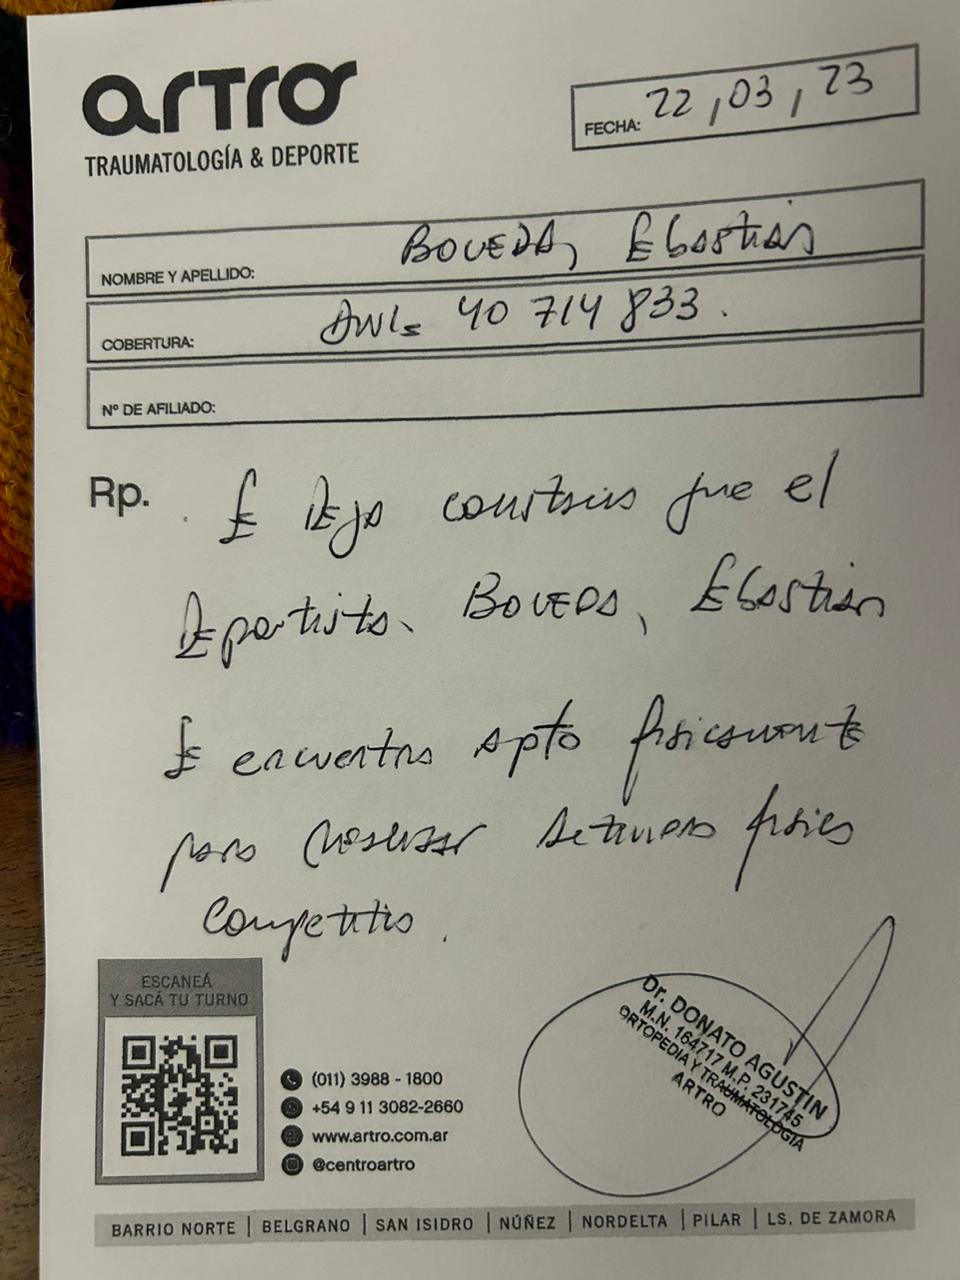 artro
TRAUMATOLOGÍA & DEPORTE
FECHA: 22, 03, 23
NOMBRE Y APELLIDO: BOVEDA, Sebastián
COBERTURA: DNI: 40 714 833.
Nº DE AFILIADO:
Rp. Se Deja constancia que el
Deportista, BOVEDA, Sebastián
Se encuentra apto físicamente
para realizar actividad física
Competitiva.
ESCANEÁ
Y SACÁ TU TURNO
(011) 3988 - 1800
+54 9 11 3082-2660
www.artro.com.ar
@centroartro
Dr. DONATO AGUSTIN
M.N. 164717 M.P. 231745
ORTOPEDIA Y TRAUMATOLOGIA
ARTRO
BARRIO NORTE | BELGRANO | SAN ISIDRO | NÚÑEZ | NORDELTA | PILAR | LS. DE ZAMORA